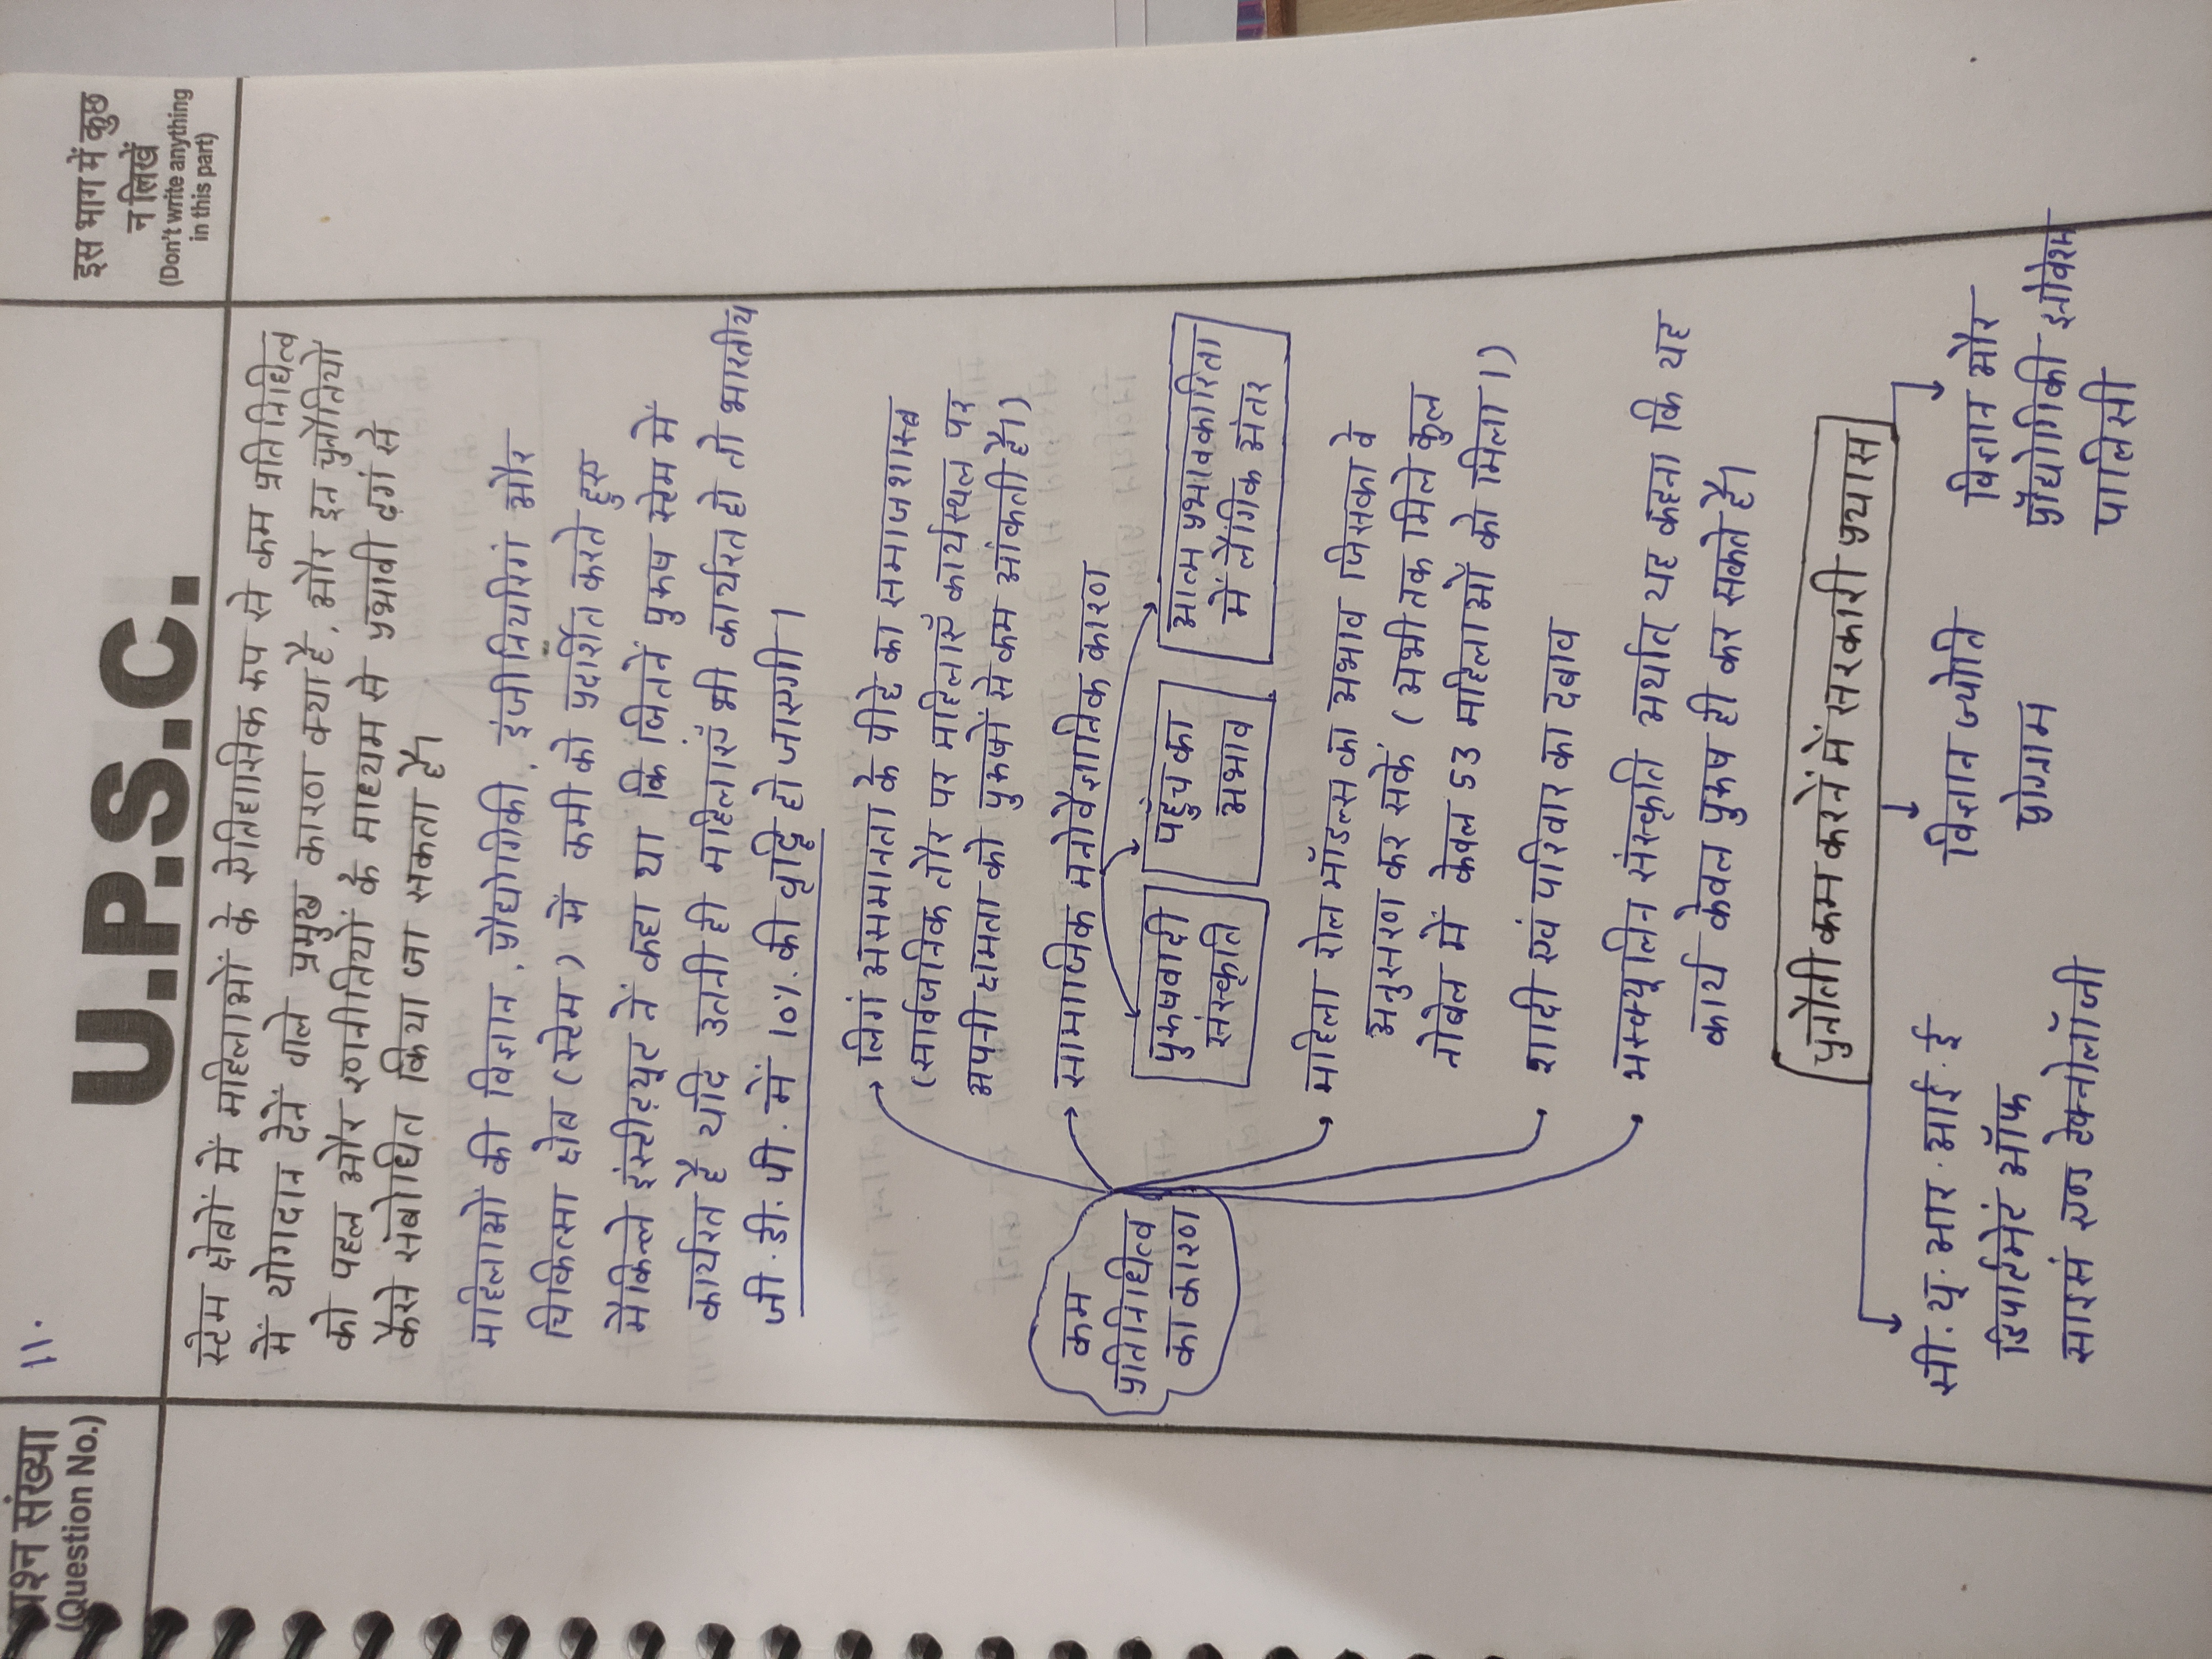 प्रश्न संख्या
(Question No.)
11.
U.P.S.C.
इस भाग में कुछ
न लिखें
(Don't write anything
in this part)
स्टेम क्षेत्रों में महिलाओं के ऐतिहासिक रूप से कम प्रतिनिधित्व
में योगदान देनें वाले प्रमुख कारण क्या है, और इन चुनौतियों
को पहल और रणनीतियों के माध्यम से प्रभावी ढगं से
कैसे संबोधित किया जा सकता है।
महिलाओं की विज्ञान, प्रौद्योगिकी, इंजीनियरिगं और
चिकित्सा क्षेत्र (स्टेम) में कमी को प्रदर्शित करते हुए
मैकिन्ले इंस्टीट्यूट नें कहा था कि जितनें पुरुष स्टेम में
कार्यरत है यदि उतनी ही महिलाएँ भी कार्यरत हो तो भारतीय
जी. डी. पी. में 10% की वृद्धि हो जाएगी।
कम
प्रतिनिधित्व
का कारण
लिगं असमानता के पीछे का समाजशास्त्र
(सार्वजनिक तौर पर महिलाएँ कार्यस्थल पर
अपनी क्षमता को पुरुषों से कम आंकती हैं।)
सामाजिक मनोवैज्ञानिक कारण
पुरुषवादी
संस्कृति
पहुंच का
अभाव
आत्म प्रभावकारिता
में लैंगिक अंतर
महिला रोल मॉडल्स का अभाव जिसका वे
अनुसरण कर सकें (अभी तक मिले कुल
नोबेल में केवल 53 महिलाओं को मिला।)
शादी एवं परिवार का दबाव
मस्क्यूलिन संस्कृति अर्थात् यह कहना कि यह
कार्य केवल पुरुष ही कर सकते हैं।
चुनौती कम करनें में सरकारी प्रयास
सी. यू. आर. आई. ई
डिपार्टमेंट ऑफ
साइसं एण्ड टेक्नोलॉजी
विज्ञान ज्योति
प्रोग्राम
विज्ञान और
प्रौद्योगिकी इनोवेशन
पालिसी